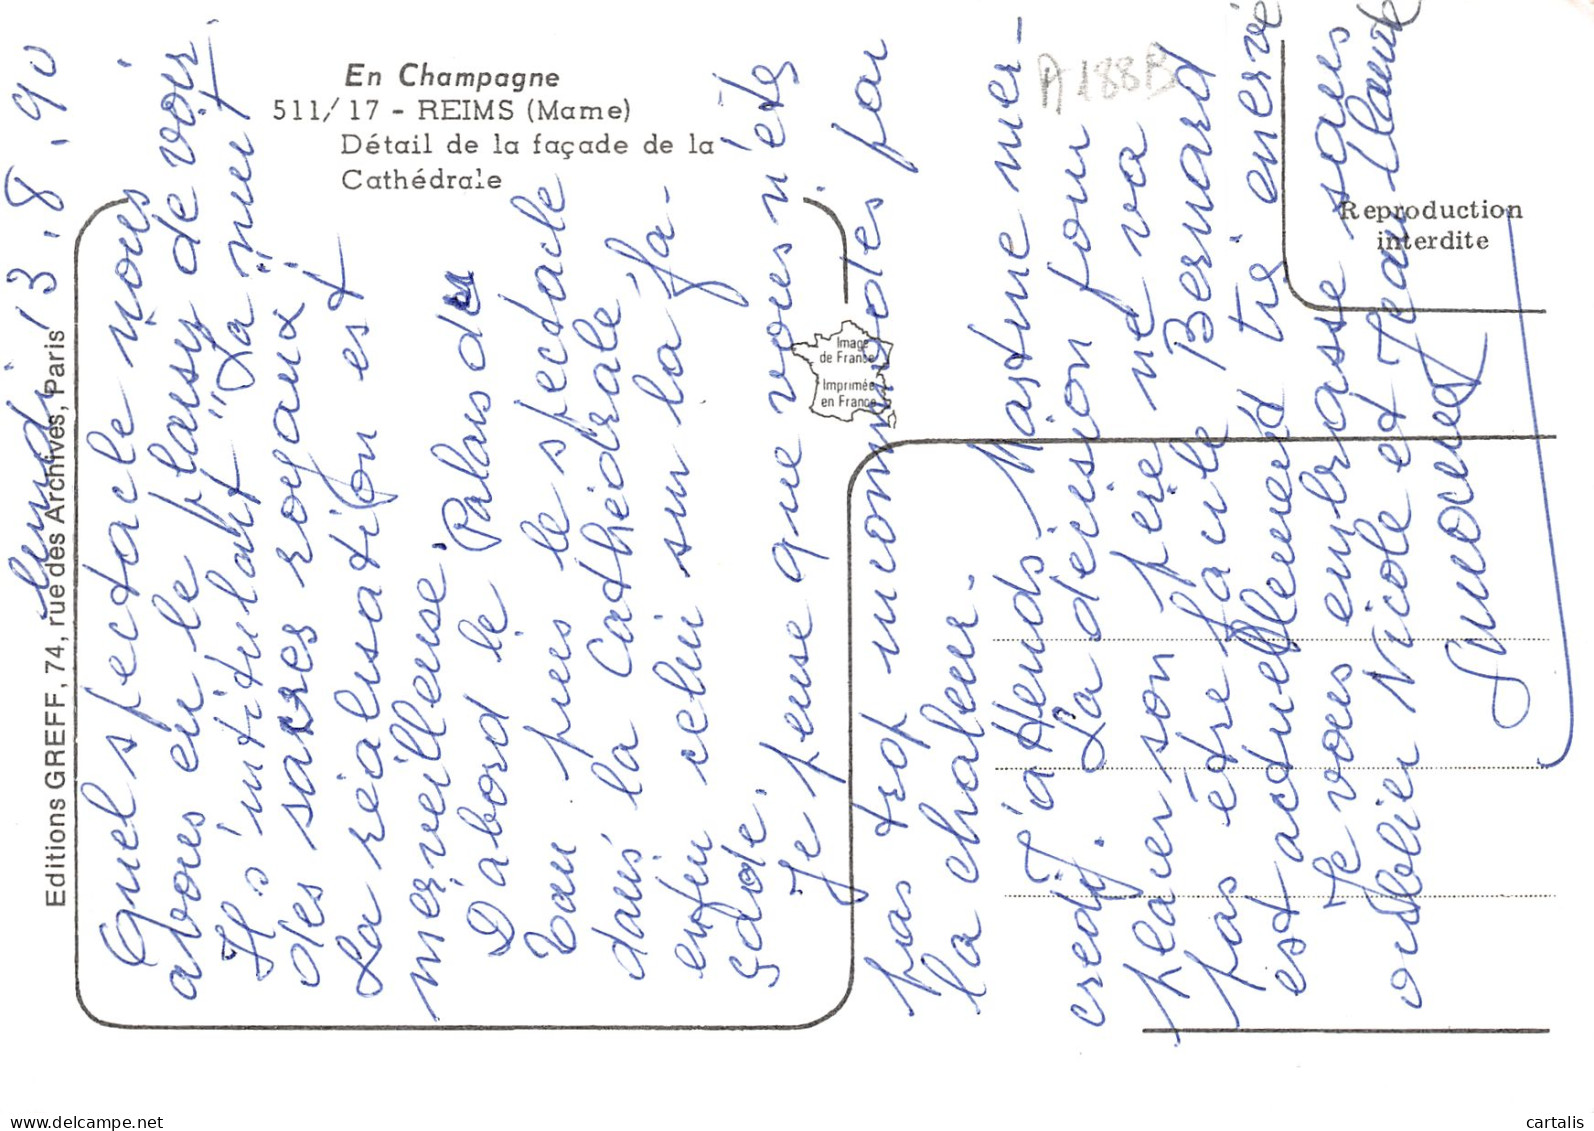 En Champagne
511/17 - REIMS (Marne)
Détail de la façade de la
Cathédrale
Editions GREFF, 74, rue des Archives, Paris
Reproduction
interdite
Image
de France
Imprimée
en France
A188B
lundi 13.8.90
Quel spectacle nous
avons eu le plaisir de voir.
Il s'intitulait "La nuit
des sacres royaux".
La réalisation est
merveilleuse.
D'abord le Palais du
Tau puis le spectacle
dans la Cathédrale,
enfin celui sur la fa-
çade.
Je pense que vous n'êtes
pas trop incommodés par
la chaleur.
J'attends Martine mer-
credi. La décision pour
placer son père ne va
pas être facile Bernard
est actuellement très énervé
Je vous embrasse sans
oublier Nicole et Jean Claude
Simonne
cartalis